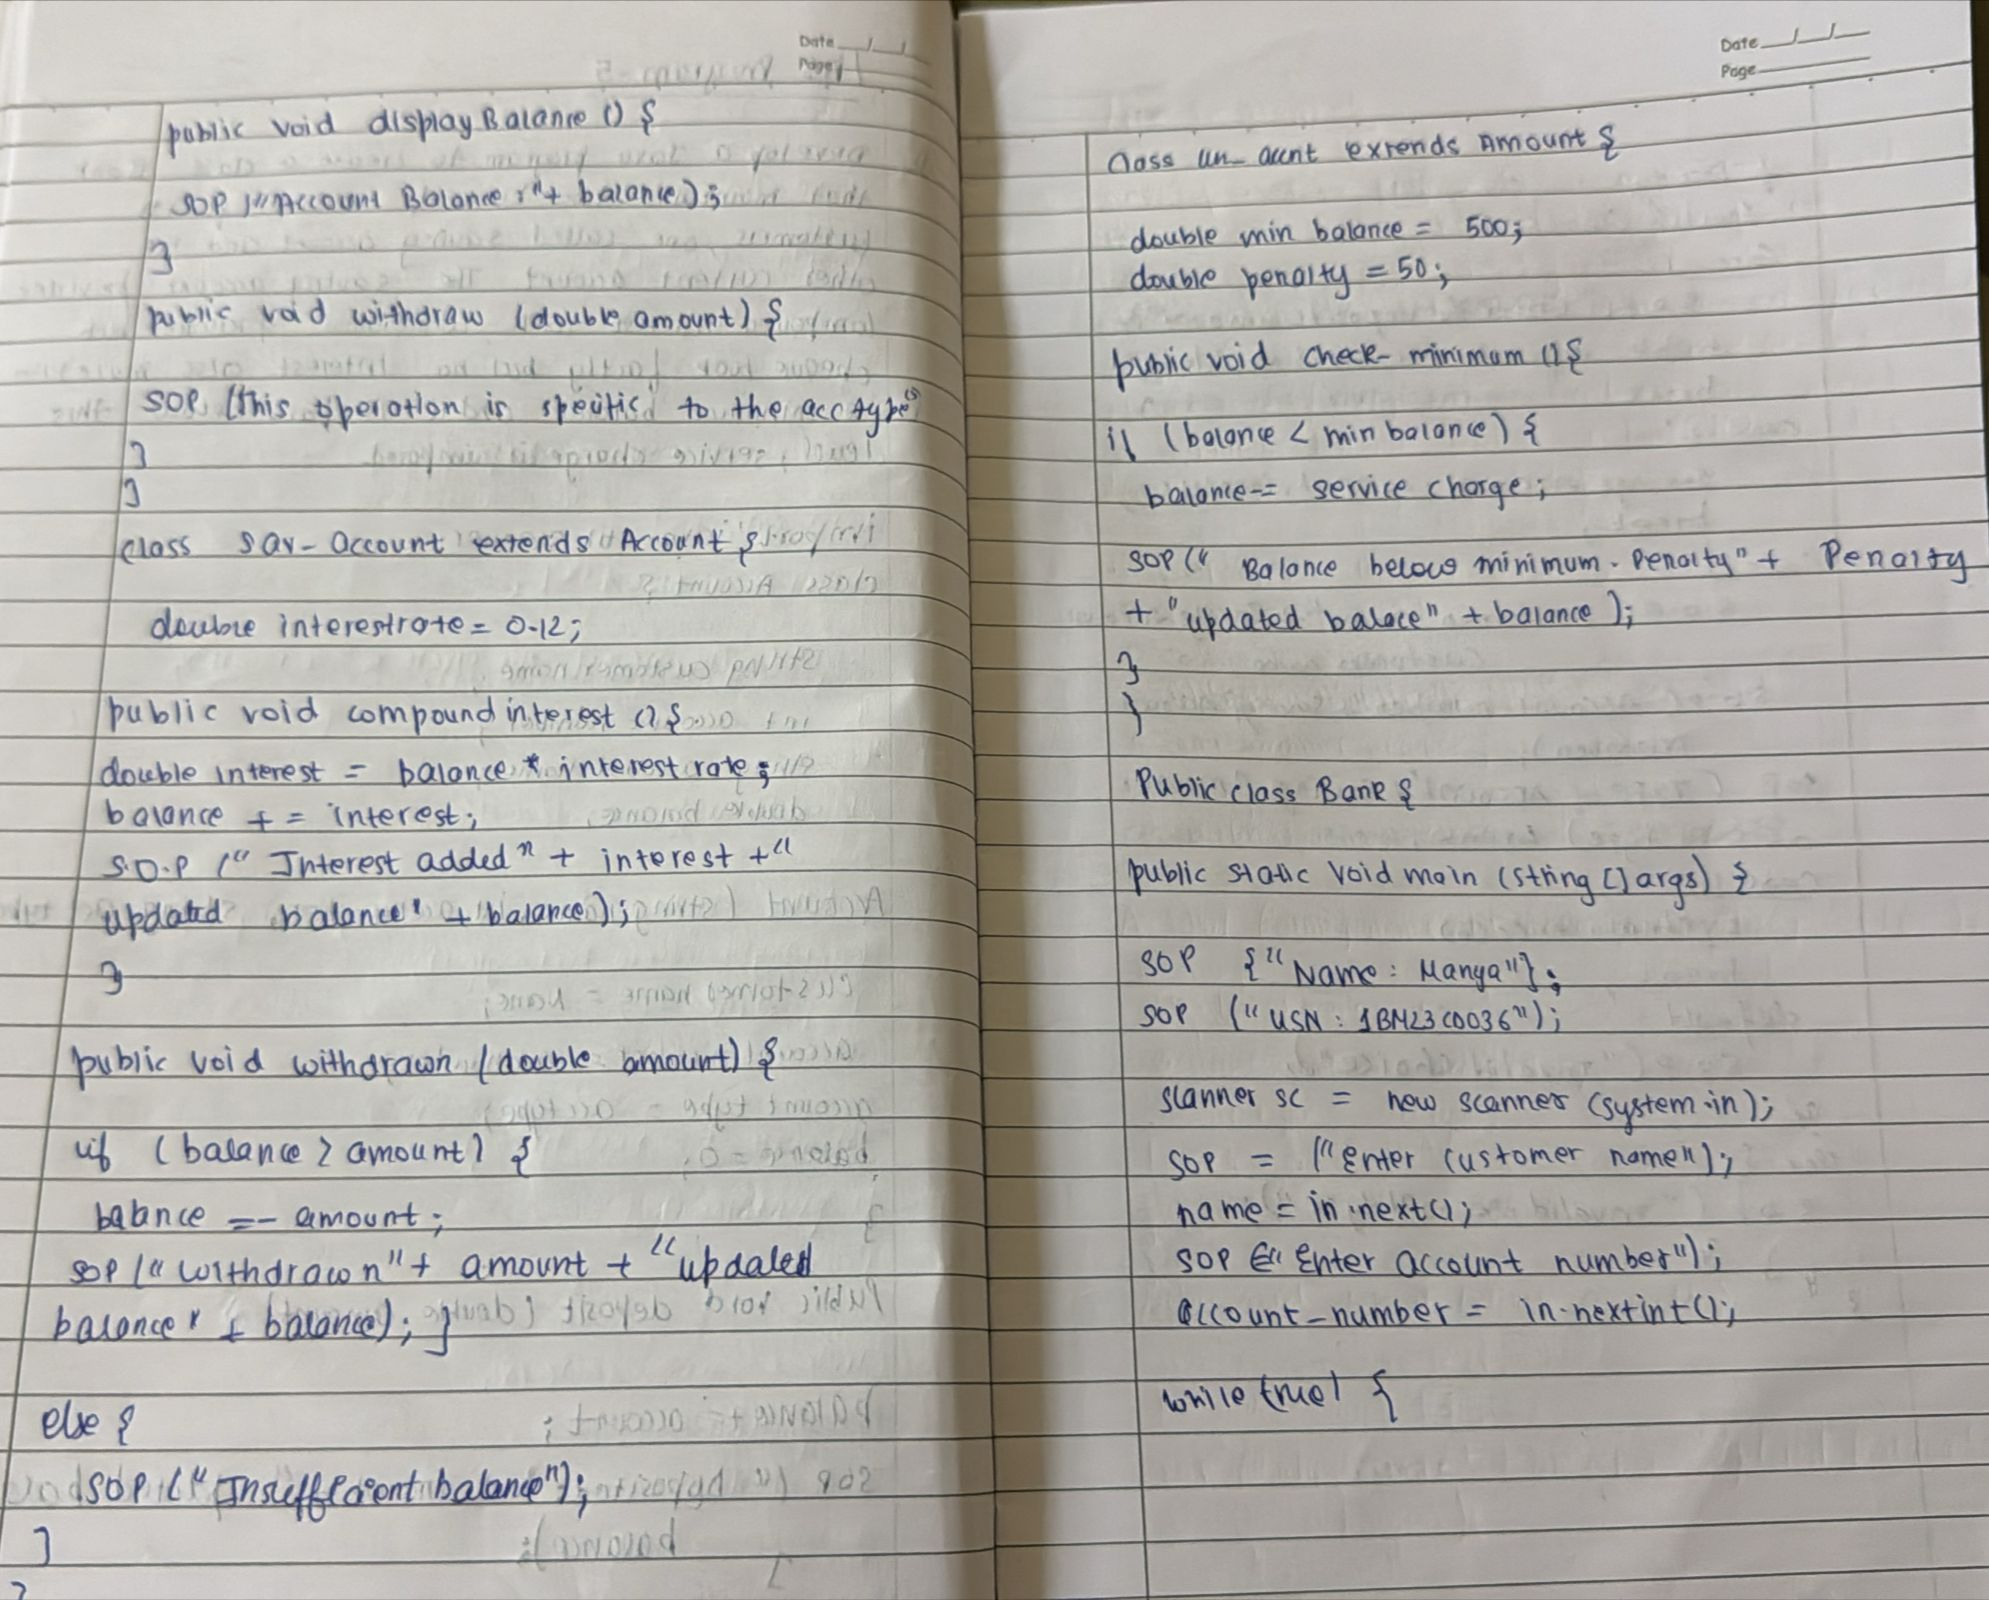 Date
Page
public void displayBalance () {
SOP ("Account Balance :"+ balance);
}
public void withdraw (double amount) {
SOP ("This operation is specific to the acc type"
}
}
class Sav-account extends Account {
double interestrate = 0.12;
public void compound interest () {
double interest = balance * interest rate;
balance += interest;
S.O.P (" Interest added" + interest +"
updated balance" + balance);
}
public void withdrawn (double amount) {
if (balance > amount) {
balance =- amount;
SOP (" withdrawn"+ amount + "updated
balance" + balance); }
else {
SOP (" Insufficient balance");
}
}
Date
Page
class extends Amount {
double min balance = 500;
double penalty = 50;
public void check-minimum () {
if (balance < min balance) {
balance-= service charge;
SOP (" Balance below minimum. Penalty" + Penalty
+ "updated balace" + balance );
}
}
Public class Bank {
public static void main (String [] args) {
SOP {"Name : Manya"};
SOP ("USN : 1BM23CD036");
scanner sc = new scanner (system.in);
SOP = ("Enter customer name");
name = in.next();
SOP ("Enter account number");
account-number = in.nextint();
while true) {